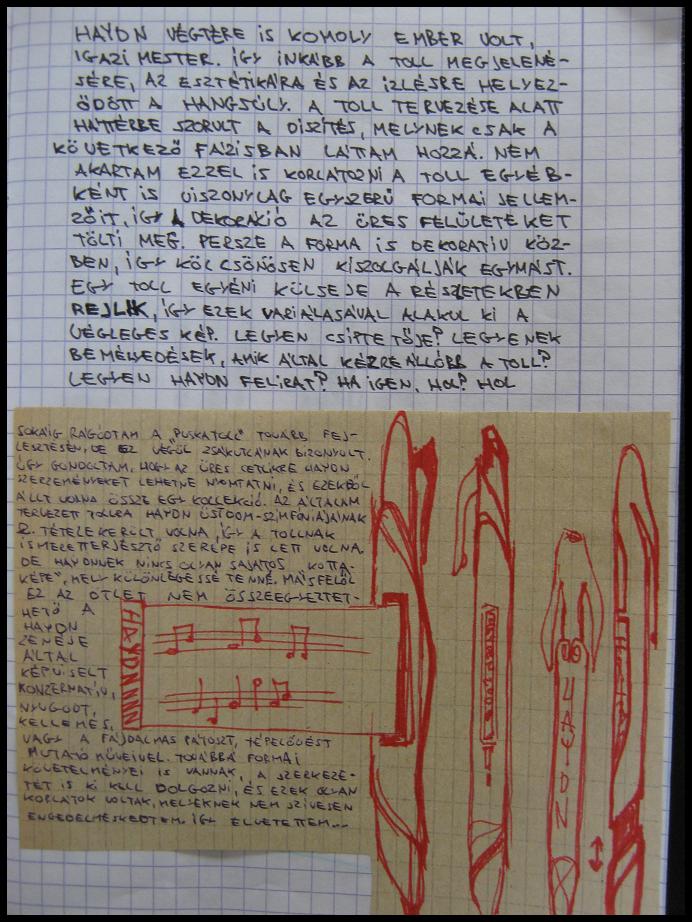 HAYDN VÉGTÉRE IS KOMOLY EMBER VOLT,
IGAZI MESTER. ÍGY INKÁBB A TOLL MEGJELENÉ-
SÉRE, AZ ESZTÉTIKÁRA ÉS AZ IZLÉSRE HELYEZ-
ŐDÖTT A HANGSÚLY. A TOLL TERVEZÉSE ALATT
HÁTTÉRBE SZORULT A DISZÍTÉS, MELYNEK CSAK A
KÖVETKEZŐ FÁZISBAN LÁTTAM HOZZÁ. NEM
AKARTAM EZZEL IS KORLÁTOZNI A TOLL EGYÉB-
KÉNT IS VISZONYLAG EGYSZERŰ FORMAI JELLEM-
ZŐIT, ÍGY A DEKORÁCIÓ AZ ÜRES FELÜLETEKET
TÖLTI MEG. PERSZE A FORMA IS DEKORATÍV KÖZ-
BEN, ÍGY KÖLCSÖNÖSEN KISZOLGÁLJÁK EGYMÁST.
EGY TOLL EGYÉNI KÜLSEJE A RÉSZLETEKBEN
REJLIK, ÍGY EZEK VARIÁLÁSÁVAL ALAKUL KI A
VÉGLEGES KÉP. LEGYEN CSIPTETŐJE? LEGYENEK
BEMÉLYEDÉSEK, AMIK ÁLTAL KÉZREÁLLÓBB A TOLL?
LEGYEN HAYDN FELIRAT? HA IGEN, HOL? HOL
SOKÁIG RÁGÓDTAM A „PUSKATOLL" TOVÁBB FEJ-
LESZTÉSÉN, DE EZ VÉGÜL ZSÁKUTCÁNAK BIZONYULT.
ÚGY GONDOLTAM, HOGY AZ ÜRES CETLIKRE HAYDN
SZERZEMÉNYEKET LEHETNE NYOMTATNI, ÉS EZEKBŐL
ÁLLT VOLNA ÖSSZE EGY KOLLEKCIÓ. AZ ÁLTALAM
TERVEZETT TOLLRA HAYDN ÜSTDOM-SZIMFÓNIÁJÁNAK
2. TÉTELE KERÜLT VOLNA, ÍGY A TOLLNAK
ISMERETTERJESZTŐ SZEREPE IS LETT VOLNA.
DE HAYDNNEK NINCS OLYAN SAJÁTOS „KOTTA-
KÉPE", MELY KÜLÖNLEGESSÉ TENNÉ. MÁSFELŐL
EZ AZ ÖTLET NEM ÖSSZEEGYEZTET-
HETŐ A
HAYDN
ZENÉJE
ÁLTAL
KÉPVISELT
KONZERVATÍV,
NYUGODT,
KELLEMES,
VAGY A FÁJDALMAS PÁTOSZT, TÉPELŐDÉST
MUTATÓ MŰVEIVEL. TOVÁBBÁ FORMAI
KÖVETELMÉNYEI IS VANNAK, A SZERKEZE-
TÉT IS KI KELL DOLGOZNI, ÉS EZEK OLYAN
KORLÁTOK VOLTAK, MELYEKNEK NEM SZÍVESEN
ENGEDELMESKEDTEM. ÍGY ELVETETTEM...
HAYDNNNN
HAYDN